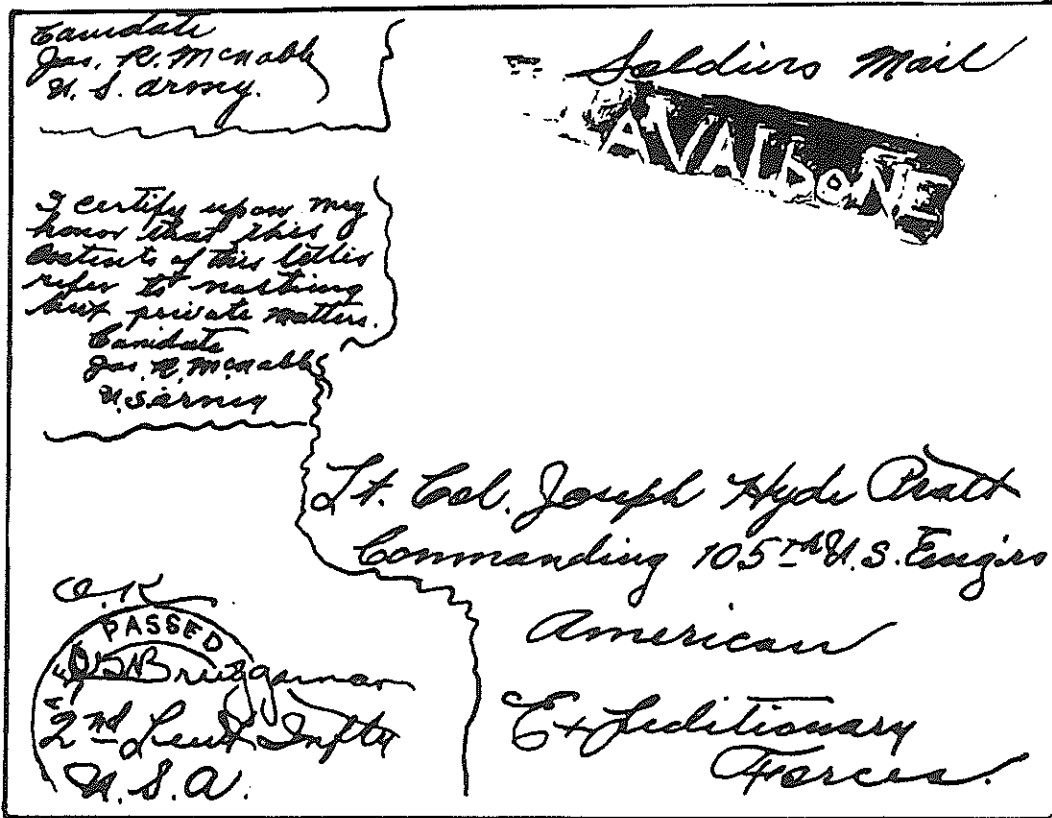 Canidate
Jas. R. McNabb
U.S. Army.
Soldiers Mail
AVAlboNE
I certify upon my
honor that this
contents of this letter
refer to nothing
but private matters.
Canidate
Jas. R. McNabb
U.S. Army
Lt. Col. Joseph Hyde Pratt
Commanding 105th U.S. Eng'rs
American
Expeditionary
Forces.
O.K.
PASSED
2nd Lieut Inftry
U.S.A.